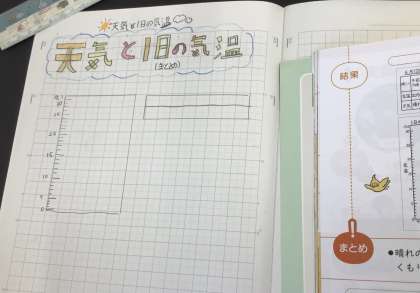 天気と1日の気温
天気と1日の気温
(まとめ)
25
20
15
10
5
0
結果
まとめ
●晴れの
くもり